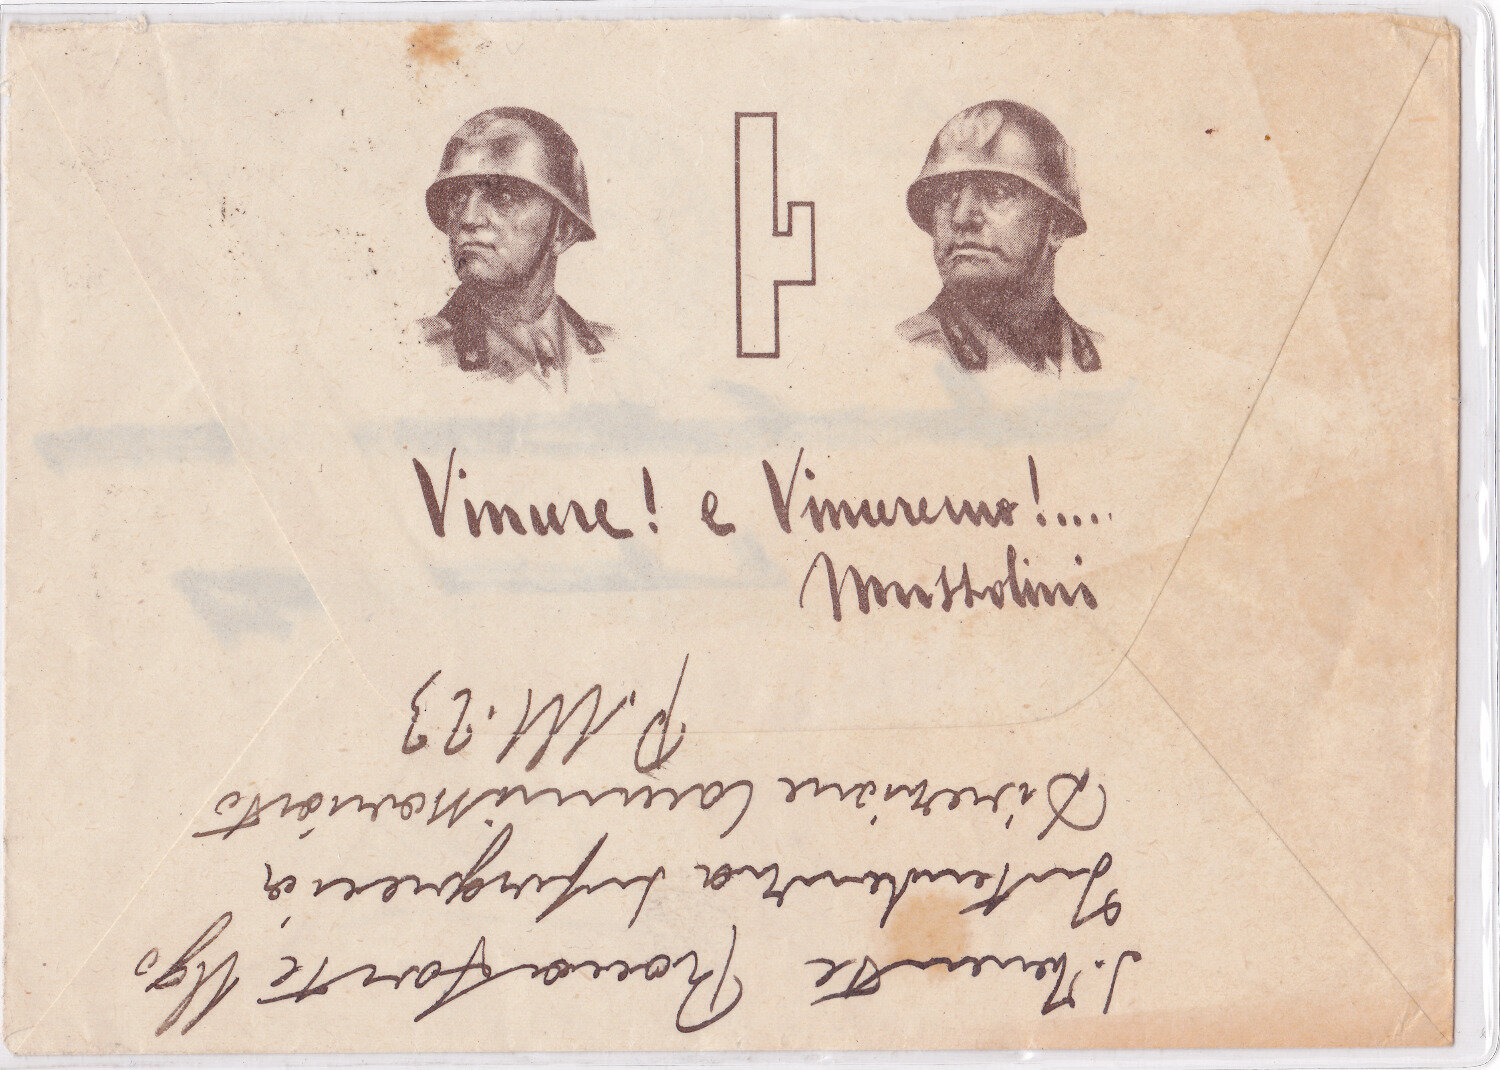 Vincere! e Vinceremo!.....
Mussolini
S. Tenente Roccaforte Ugo
Intendenza Supergrecia
Direzione Commissariato
P.M. 23